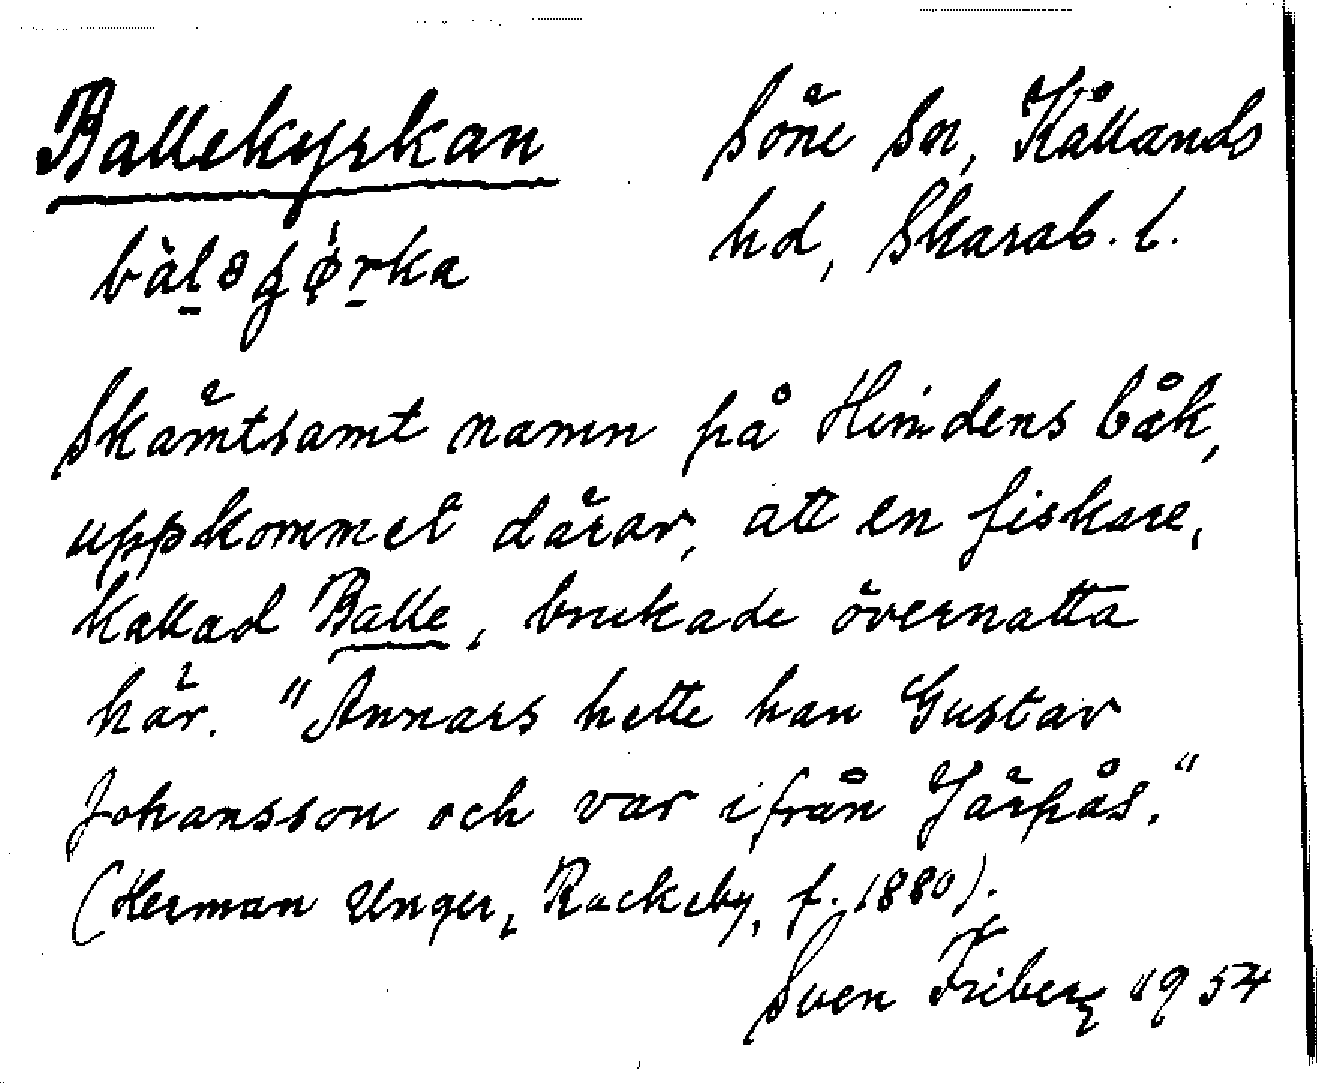 Ballekyrkan
Söne sn, Kållands
hd, Skarab. l.
Skämtsamt namn på Hindens båk,
uppkommet därav, att en fiskare,
kallad Balle, brukade övernatta
här. "Annars hette han Gustav
Johansson och var ifrån Järpås."
(Herman Unger, Rackeby, f. 1880).
Sven Friberg 1954